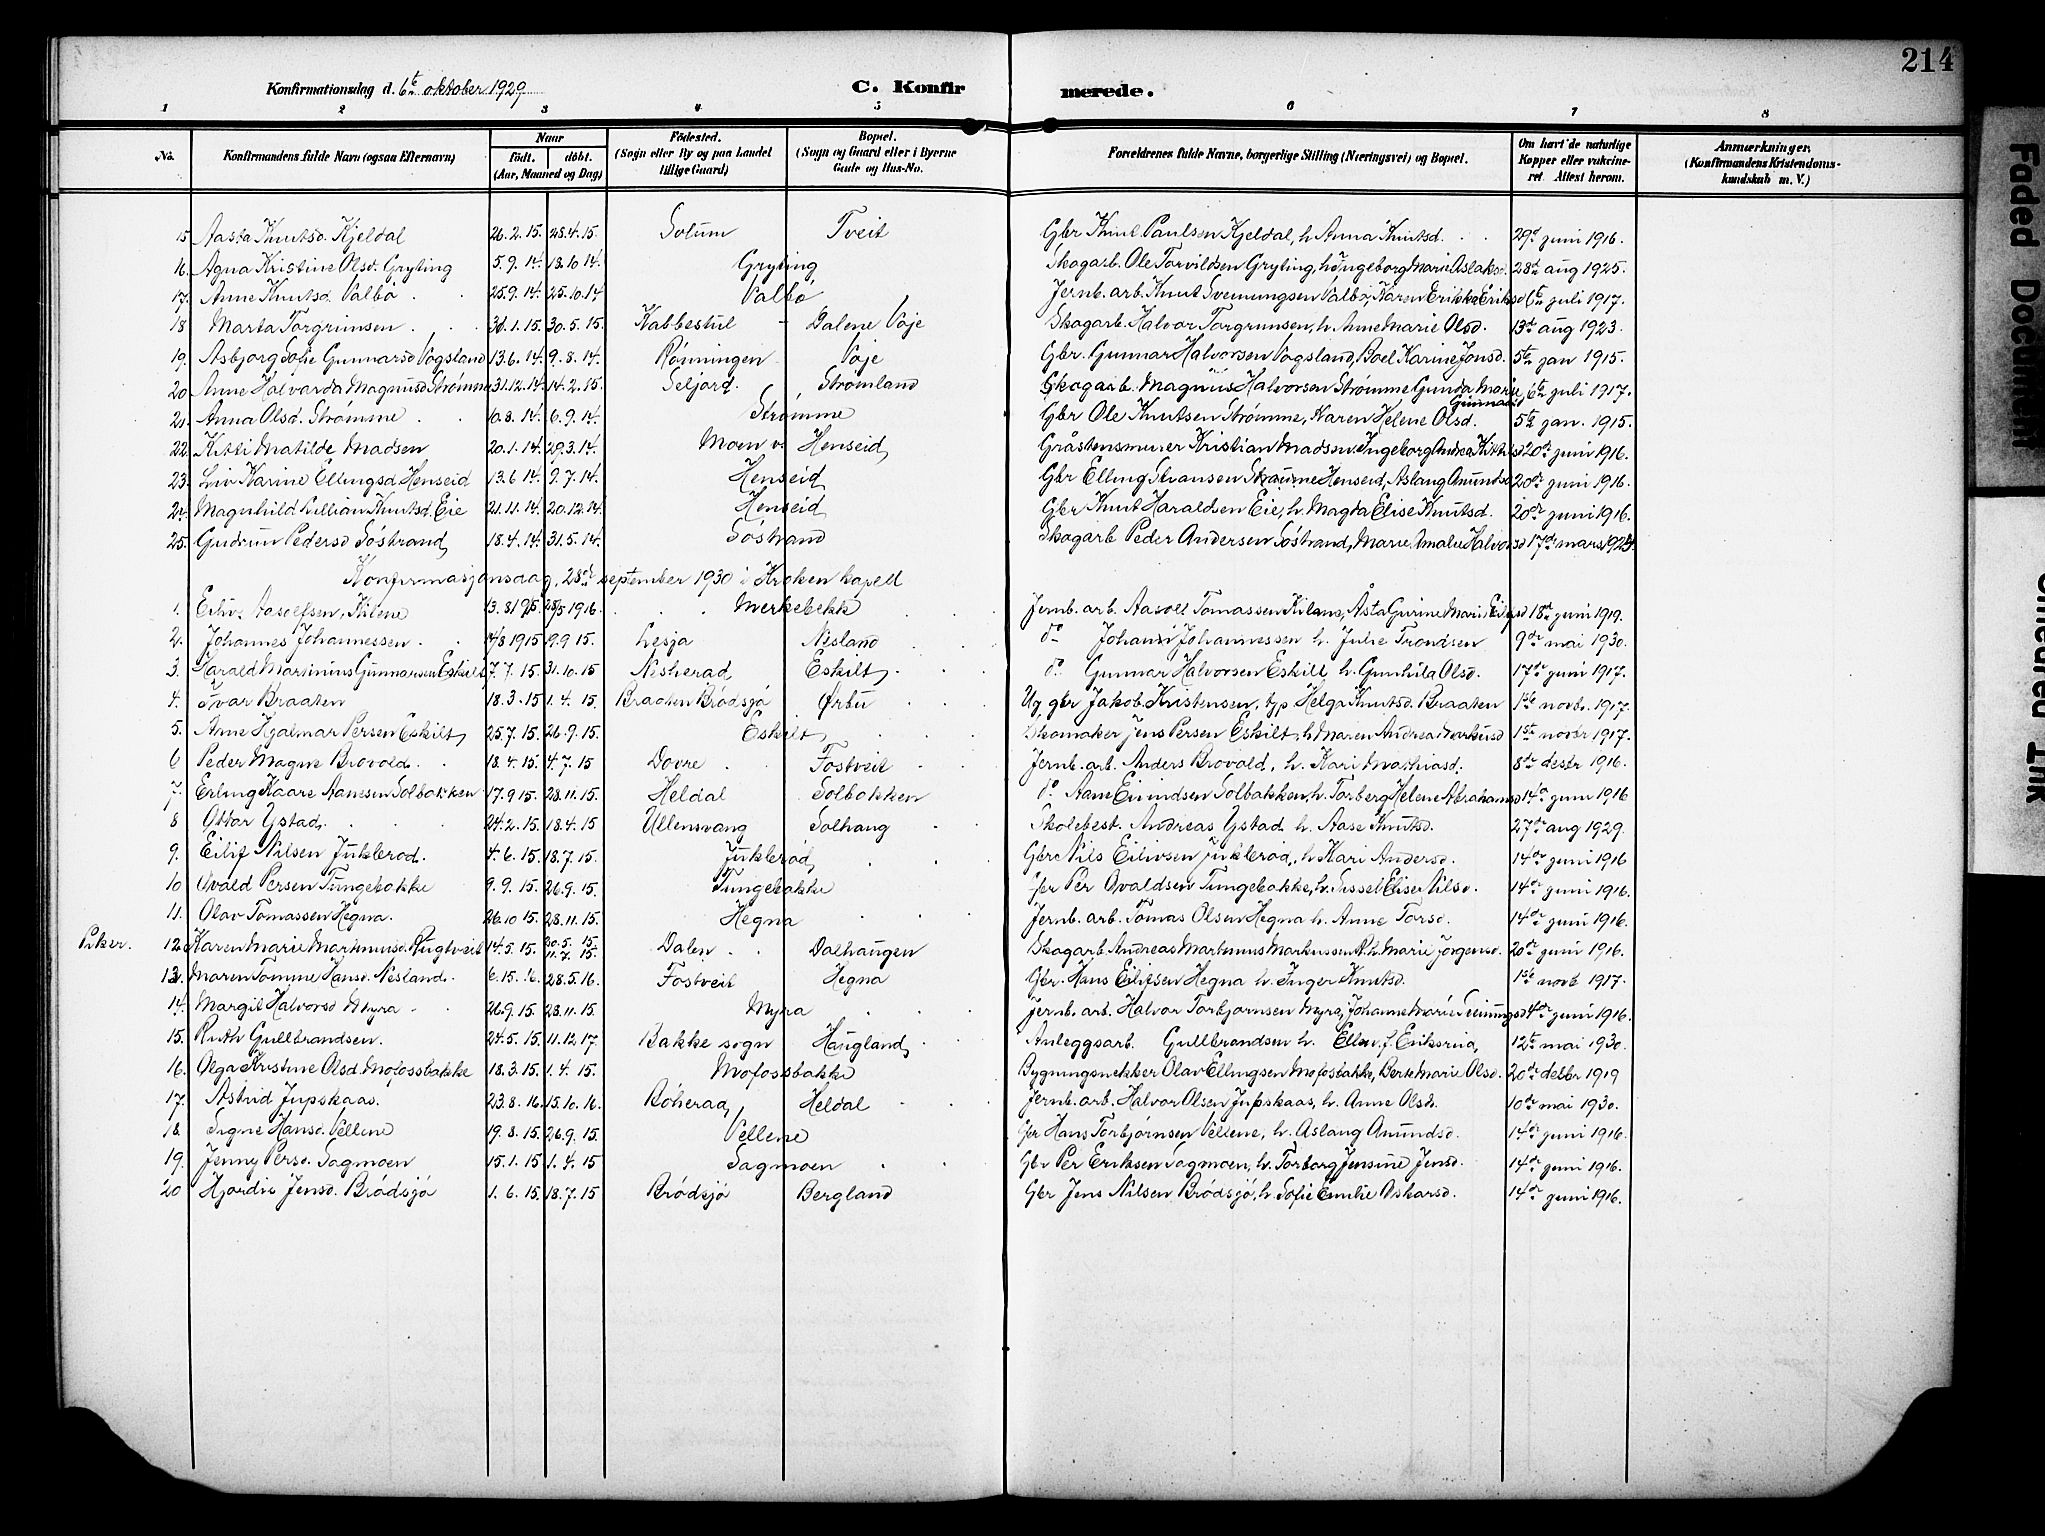 214
Konfirmationsdag d. 6te oktober 1929 C. Konfirmerede.
1 2 3 4 5 6 7 8
No. Konfirmandens fulde Navn (ogsaa Efternavn) Naar født. døbt. (Aar, Maaned og Dag) Fødested. (Sogn eller By og paa Landet tillige Gaard) Bopæl. (Sogn og Gaard eller i Byerne Gade og Hus-No. Forældrenes fulde Navne, borgerlige Stilling (Næringsvei) og Bopæl. Om havt de naturlige Kopper eller vakcineret Attest herom. Anmærkninger, (Konfirmandens Kristendomskundskab m. V.)
15 Aasta Knutsd. Kjeldal 26.2.15. 25.4.15. Solum Tveit Gbr Knut Paulsen Kjeldal, h Anna Knutsd. 29de juni 1916.
16. Agna Kristine Olsd. Gryting 5.9.14. 18.10.14. Gryting Skogarb. Ole Torvildsen Gryting, h Ingeborg Marie Aslaksd. 28de aug 1925.
17. Anne Knutsd. Valbø 25.9.14. 25.10.14 Valbø Jernb. arb. Knut Svenungsen Valbø, Karen Erikka Eriksd 6te juli 1917.
18 Marta Torgrimsen 31.1.15. 30.5.15. Kabbestul Dalene Voje Skogarb. Halvor Torgrimsen, h. Anne Marie Olsd. 13de aug 1923.
19. Asbjorg Sofie Gunnarsd Vogsland 13.6.14. 9.8.14. Rønningen Voje Gbr. Gunnar Halvorsen Vogsland, Boel Karine Jonsd. 5te jan 1915.
20 Anne Halvarda Magnusd Strømme 31.12.14. 14.2.15. Seljord. Strømland Skogarb. Magnus Halvorsen Strømme Gunda Marie Gunnarsd 6te juli 1917.
21. Anna Olsd. Strømme 10.8.14. 6.9.14. Strømme Gbr Ole Knutsen Strømme, Karen Helene Olsd. 5te jan. 1915.
22. Kitti Matilde Madsen 20.1.14. 29.3.14. Moen v. Henseid Gråstensmurer Kristian Madsen. Ingeborg Andrea Kittilsd 20de juni 1916.
23. Liv Karine Ellingsd Henseid 13.6.14. 9.7.14. Henseid Gbr Elling Stiansen Straume Henseid, Aslaug Anundsd 20de juni 1916.
24. Magnhild Lillian Knutsd. Eie 21.11.14. 20.12.14. Henseid Gbr Knut Haraldsen Eie, h. Magta Elise Knutsd. 20de juni 1916.
25. Gudrun Pedersd Søstrand 18.4.14. 31.5.14. Søstrand Skogarb Peder Andersen Søstrand, Marie Amalie Halvorsd 17de mars
Konfirmasjonsdag, 28de september 1930 i Kroken kapell
1. Eiliv Aasolfsen, Kilene 13.8.1915 1916. Merkebekk Jernb. arb. Aasoll Tomassen Kilene, Asta Gurine Marie 18de juni 1919.
2. Johannes Johannessen. 14/8 1915 19.9.15. Lesja Nesland do Johan Johannessen h. Julie Trondsen 9de mai 1930.
3. Harald Martinius Gunnarsen Eskilt 7.7.15. 31.10.15 Nesherad Eskilt do. Gunnar Halvorsen Eskilt h. Gunhild Olsd. 17de juni 1917.
4. Ivar Braaten 18.3.15 1.4.15. Braaten Brødsjø Ørbu Ug. gbr Jakob Kristensen, Helga Knutsd. Braaten 1ste novbr. 1917.
5. Arne Hjalmar Persen Eskilt 25.7.15. 26.9.15. Eskilt Skomaker Jens Persen Eskilt, h Maren Andrea Markusd 1ste novbr 1917.
6 Peder Magne Brovold 18.4.15. 4.7.15 Dovre Fostveit Jernb. arb. Anders Brovold, h. Kari Mathiasd. 8de desbr 1916.
7. Erling Kaare Aanesen Solbakken 17.9.15. 28.11.15. Heldal Solbakken do Aane Eivindsen Solbakken, h. Torberg Helene Abrahamsd 14de juni 1916
8 Ottar Ystad. 24.2.15. 18.4.15 Ullensvang Solhaug Skolebest. Andreas Ystad h. Aase Knutsd. 27de aug 1929.
9. Eilif Nilsen Juklerød. 4.6.15. 18.7.15. Juklerød Gbr Nils Eilivsen Juklerød, h Kari Andersd. 14de juni 1916
10 Ovald Persen Tungebakke 9.9.15. 26.9.15. Tungebakke Gbr Per Ovaldsen Tungebakke, h. Sissel Elise Nilsd. 14de juni 1916.
11. Olav Tomassen Hegna. 26.10.15. 28.11.15. Hegna Jernb. arb. Tomas Olsen Hegna h. Anne Torsd. 14de juni 1916.
Piker. 12. Karen Marie Martinusd. Rugtveit 14.5.15. 30.5.15 11.7.15. Dalen Dalhaugen Skogarb. Andreas Martinus Markussen R. h. Marie Jørgensd. 20de juni 1916.
13. Maren Tomine Hansd. Nesland. 6.15.16. 28.5.16. Fostveit Hegna Gbr. Hans Eilifsen Hegna h. Inger Knutsd. 1ste novb 1917.
14. Margit Halvorsd Myra 26.9.15. 28.11.15. Myra Jernb. arb. Halvor Torbjørnsen Myra, Johanne Marie 14de juni 1916.
15. Ruth Gullbrandsen. 24.5.15. 11.12.17. Bakke sogn Haugland Anleggsarb. Gullbrandsen h. Ellen f. 12te mai 1930.
16. Olga Kristine Olsd Mofossbakke 18.3.15. 1.4.15. Mofossbakke Bygningsnekker Olav Ellingsen Mofosbakke, Berte Marie Olsd. 20de desbr 1919
17. Astrid Jupskaas. 23.8.16. 15.10.16. Bøherad, Heldal Jernb. arb. Halvor Olsen Jupskaas, h. Anne Olsd. 10de mai 1930.
18. Signe Hansd. Vellene 19.8.15. 26.9.15. Vellene Gbr Hans Torbjørnsen Vellene, h. Aslaug Anundsd. 14de juni 1916.
19. Jenny Persd. Sagmoen 15.1.15 1.4.15 Sagmoen Gbr Per Eriksen Sagmoen, h. Torborg Jensine Jensd. 14de juni 1916.
20 Hjørdis Jensd. Brødsjø 1.6.15. 18.7.15 Brødsjø Bergland Gbr Jens Nilsen Brødsjø, h. Sofie Emilie Oskarsd. 14de juni 1916.
Faded Document
Smeared Ink